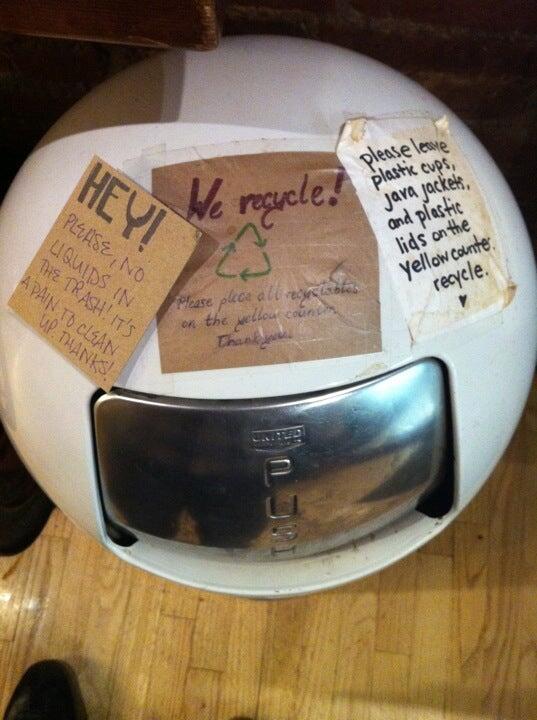 HEY!
PLEASE, NO
LIQUIDS IN
THE TRASH! IT'S
A PAIN TO CLEAN
UP. THANKS!
We recycle!
Please place all recyclables
on the yellow counter.
Thank you.
please leave
plastic cups,
java jackets,
and plastic
lids on the
yellow counter.
recycle.
UNITED
PUSH